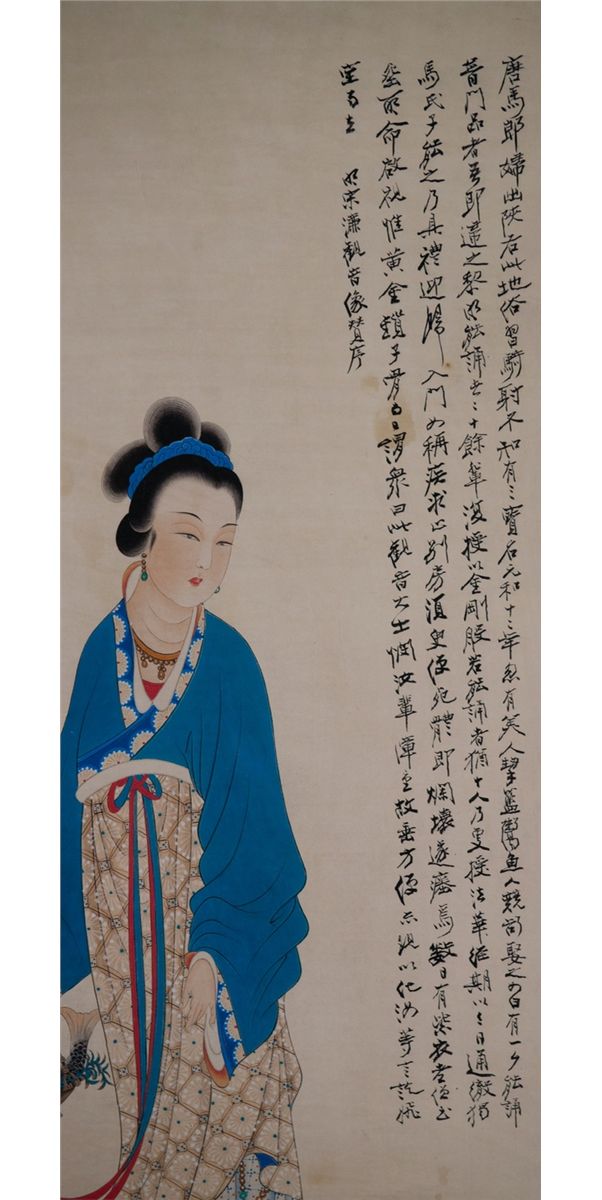 唐馬郎婦出陝右此地俗習騎射不知有三寶名元和十二年忽有美人挈籃鬻魚人競欲娶之女曰有一夕能誦
普門品者吾即適之黎明能誦者二十餘輩復授以金剛般若能誦者猶十人乃更授法華經期以三日通徹獨
馬氏子能之乃具禮迎歸入門女稱疾求止別房須臾便死體即爛壞遂瘞焉數日有紫衣老僧至
瘞所命啟視惟黃金鎖子骨謂眾曰此觀音大士憫汝輩障重故垂方便示現以化汝等言訖飛
空而去 明宋濂觀音像贊序